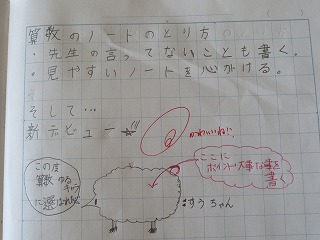 算数のノートのとり方
・先生の言ってないことも書く。
・見やすいノートを心がける。
そして…
新デビュー★!!
かわいいね!!
ここに
ポイントや大事な事を
書く
この度
算数
に選ばれた
すうちゃん